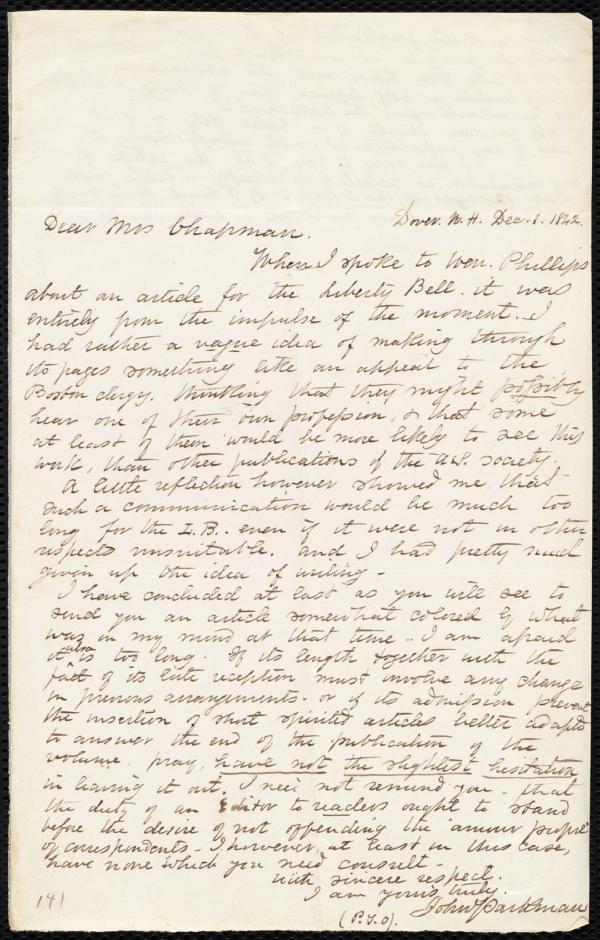 Dover. N. H. Dec. 1. 1842.
Dear Mrs Chapman.
When I spoke to Wen. Phillips
about an article for the Liberty Bell. it was
entirely from the impulse of the moment.. I
had rather a vague idea of making through
its pages something like an appeal to the
Boston clergy. thinking that they might possibly
hear one of their own profession, & that some
at least of them would be more likely to see this
work, than other publications of the A.S. society.
A little reflection however showed me that
such a communication would be much too
long for the L.B.. even if it were not in other
respects unsuitable. and I had pretty much
given up the idea of writing -
I have concluded at last as you will see to
send you an article somewhat colored by what
was in my mind at that time.. I am afraid
it also is too long. If its length together with the
fact of its late reception must involve any change
in previous arrangements - or if its admission prevent
the insertion of short spirited articles better adapted
to answer the end of the publication of the
volume, pray, have not the slightest hesitation
in leaving it out. I need not remind you - that
the duty of an Editor to readers ought to stand
before the desire of not offending the "amour propre"
of correspondents - I however, at least in this case,
have none which you need consult -
with sincere respect.
I am yours truly.
John Parkman
(P.T.O).
141